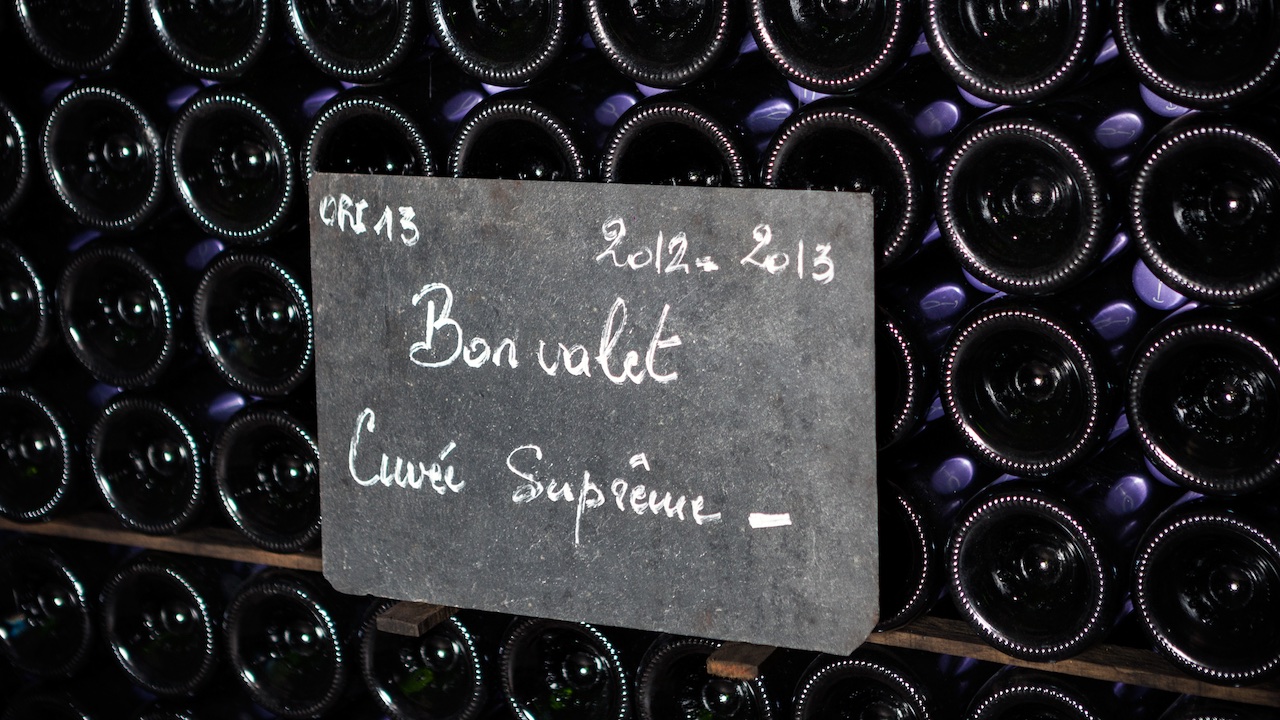 ORI 13
2012 - 2013
Bonvalet
Cuvée Suprême -